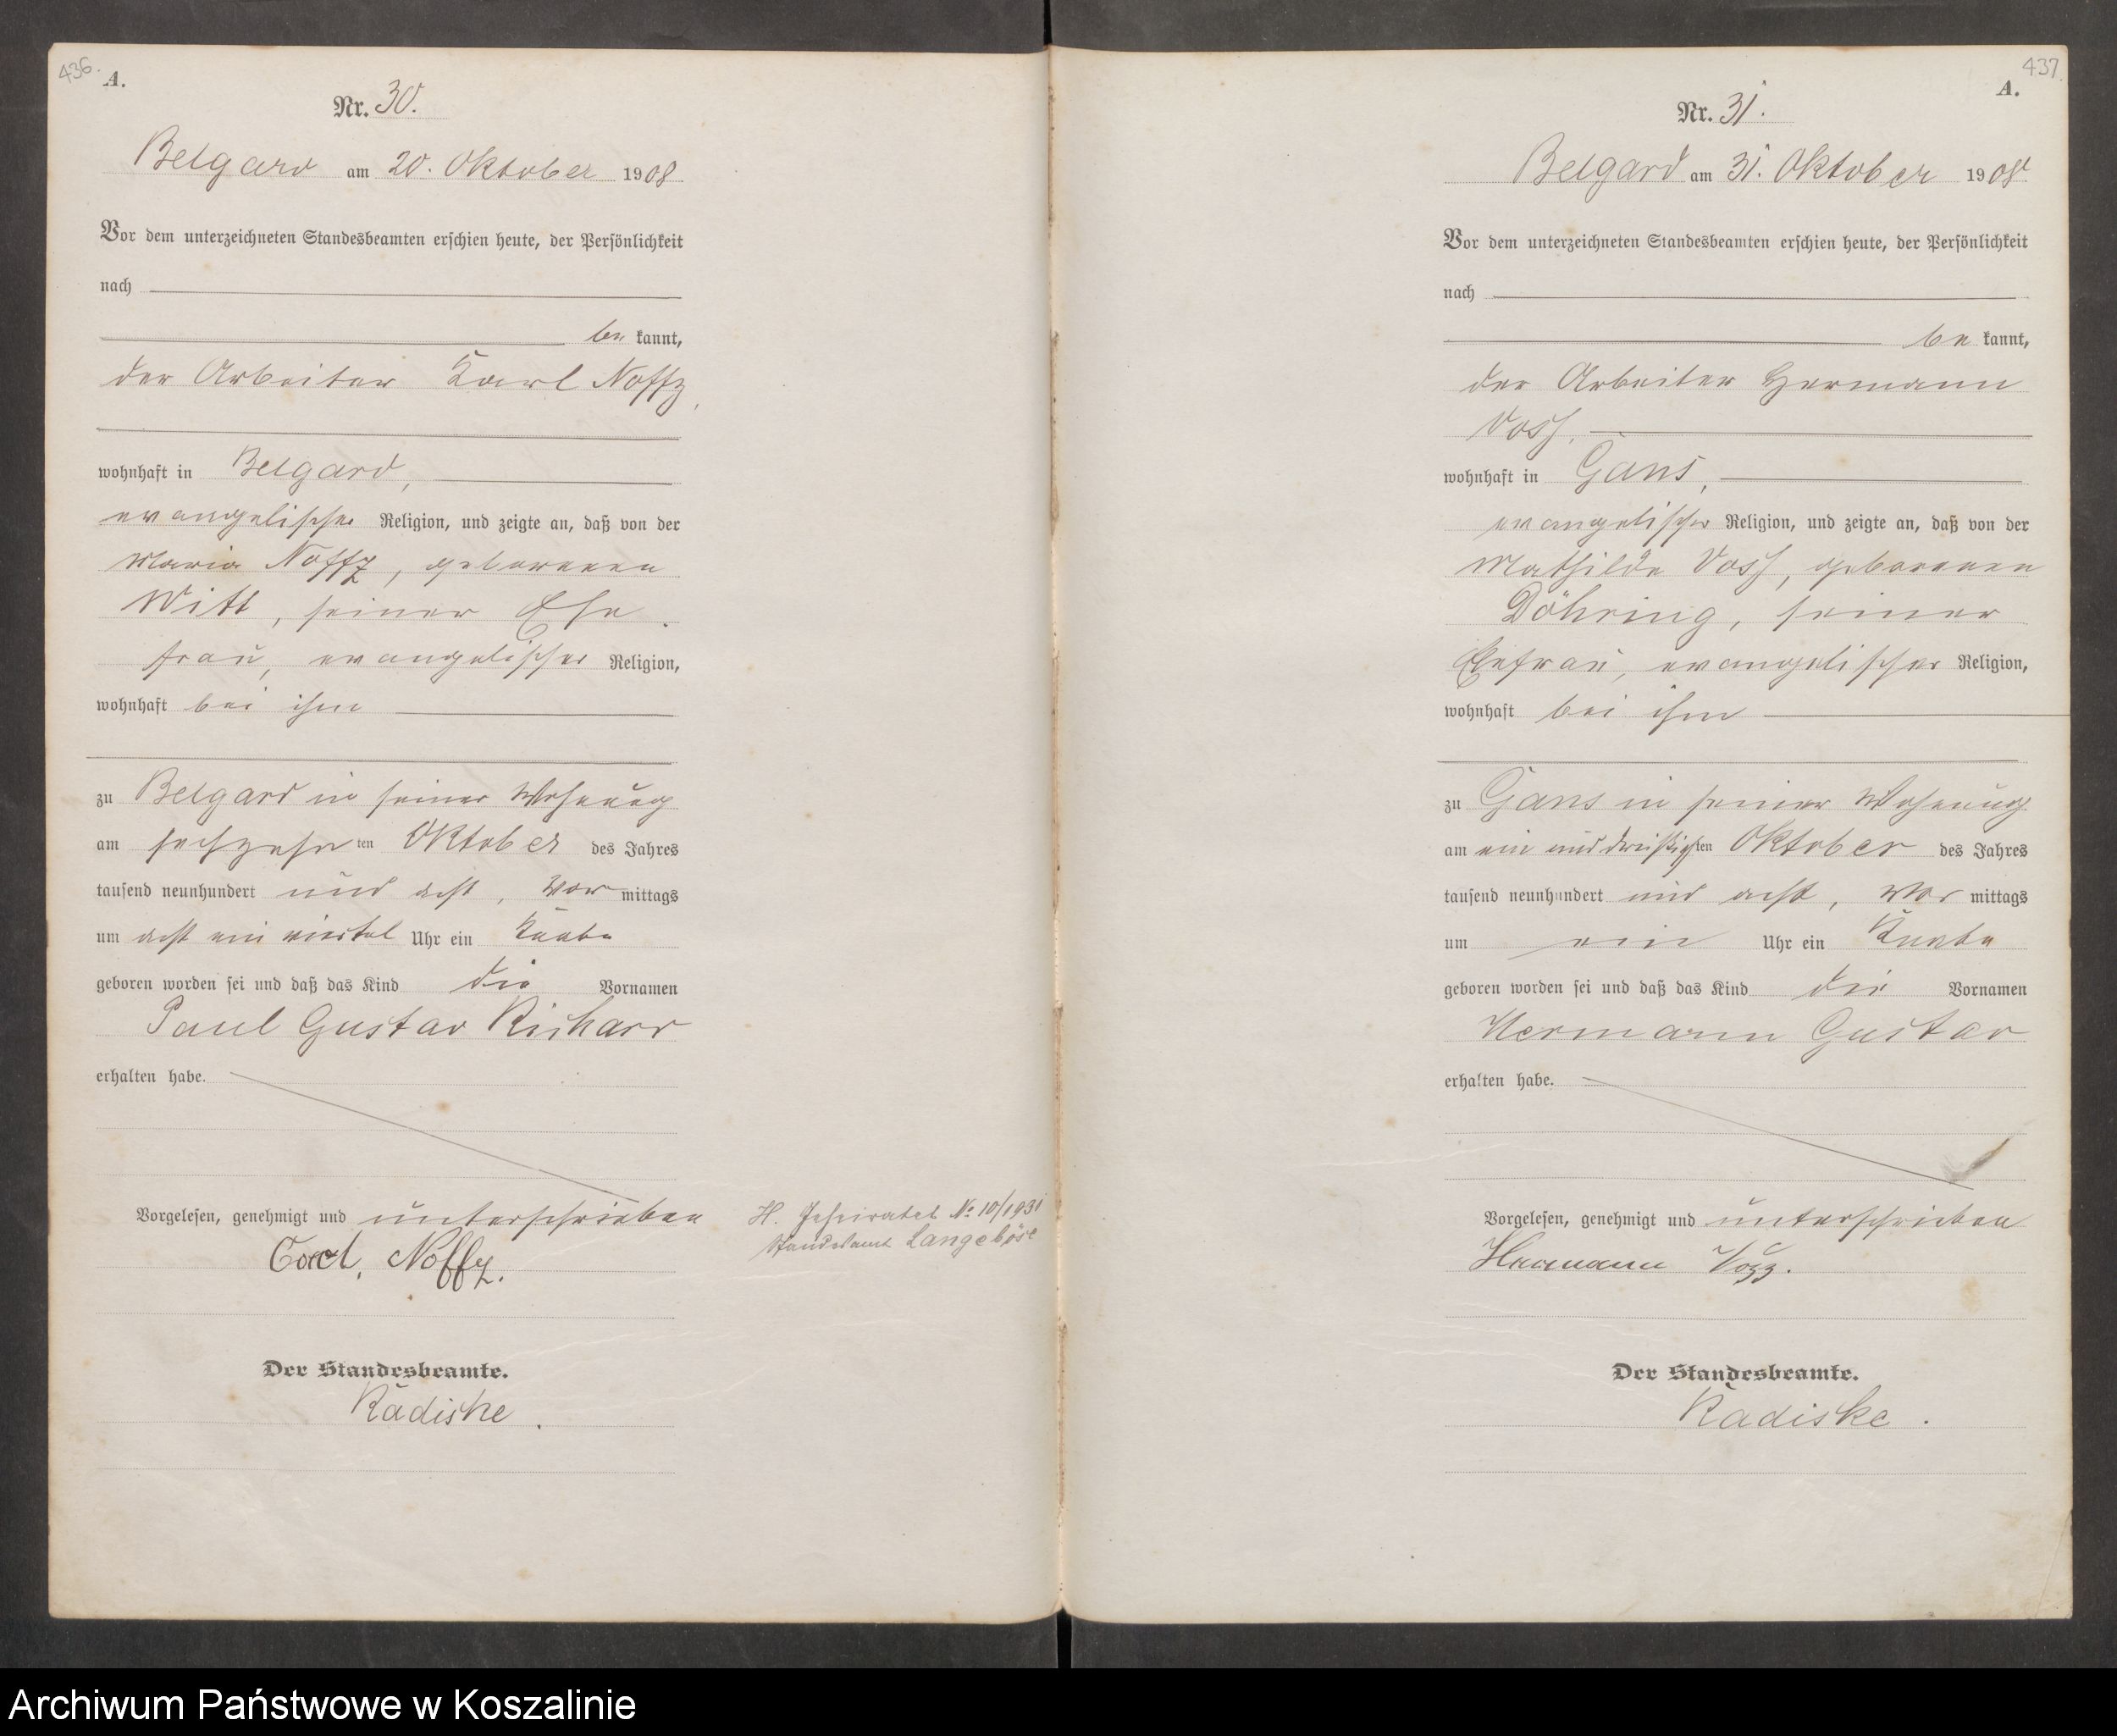 436.
A.
Nr. 30.
Belgard am 20. Oktober 1908
Vor dem unterzeichneten Standesbeamten erschien heute, der Persönlichkeit
nach
be kannt,
der Arbeiter Karl Noffz,
wohnhaft in Belgard,
evangelischer Religion, und zeigte an, daß von der
Marie Noffz, geborenen
Witt, seiner Ehe-
frau, evangelischer Religion,
wohnhaft bei ihm
zu Belgard in seiner Wohnung
am sechzehn ten Oktober des Jahres
tausend neunhundert und acht, Vor mittags
um acht ein viertel Uhr ein Knabe
geboren worden sei und daß das Kind die Vornamen
Paul Gustav Richard
erhalten habe.
Vorgelesen, genehmigt und unterschrieben
Carl, Noffz.
Der Standesbeamte.
Radiske.
H. Geheiratet No 10/1931
Standesamt Langeböse
437.
A.
Nr. 31.
Belgard am 31. Oktober 1908
Vor dem unterzeichneten Standesbeamten erschien heute, der Persönlichkeit
nach
be kannt,
der Arbeiter Hermann
Voss,
wohnhaft in Gans,
evangelischer Religion, und zeigte an, daß von der
Mathilde Voss, geborenen
Döhring, seiner
Ehefrau, evangelischer Religion,
wohnhaft bei ihm
zu Gans in seiner Wohnung
am ein und dreißigsten Oktober des Jahres
tausend neunhundert und acht, Vor mittags
um ein Uhr ein Knabe
geboren worden sei und daß das Kind die Vornamen
Hermann Gustav
erhalten habe.
Vorgelesen, genehmigt und unterschrieben
Hermann Voss.
Der Standesbeamte.
Radiske.
Archiwum Państwowe w Koszalinie